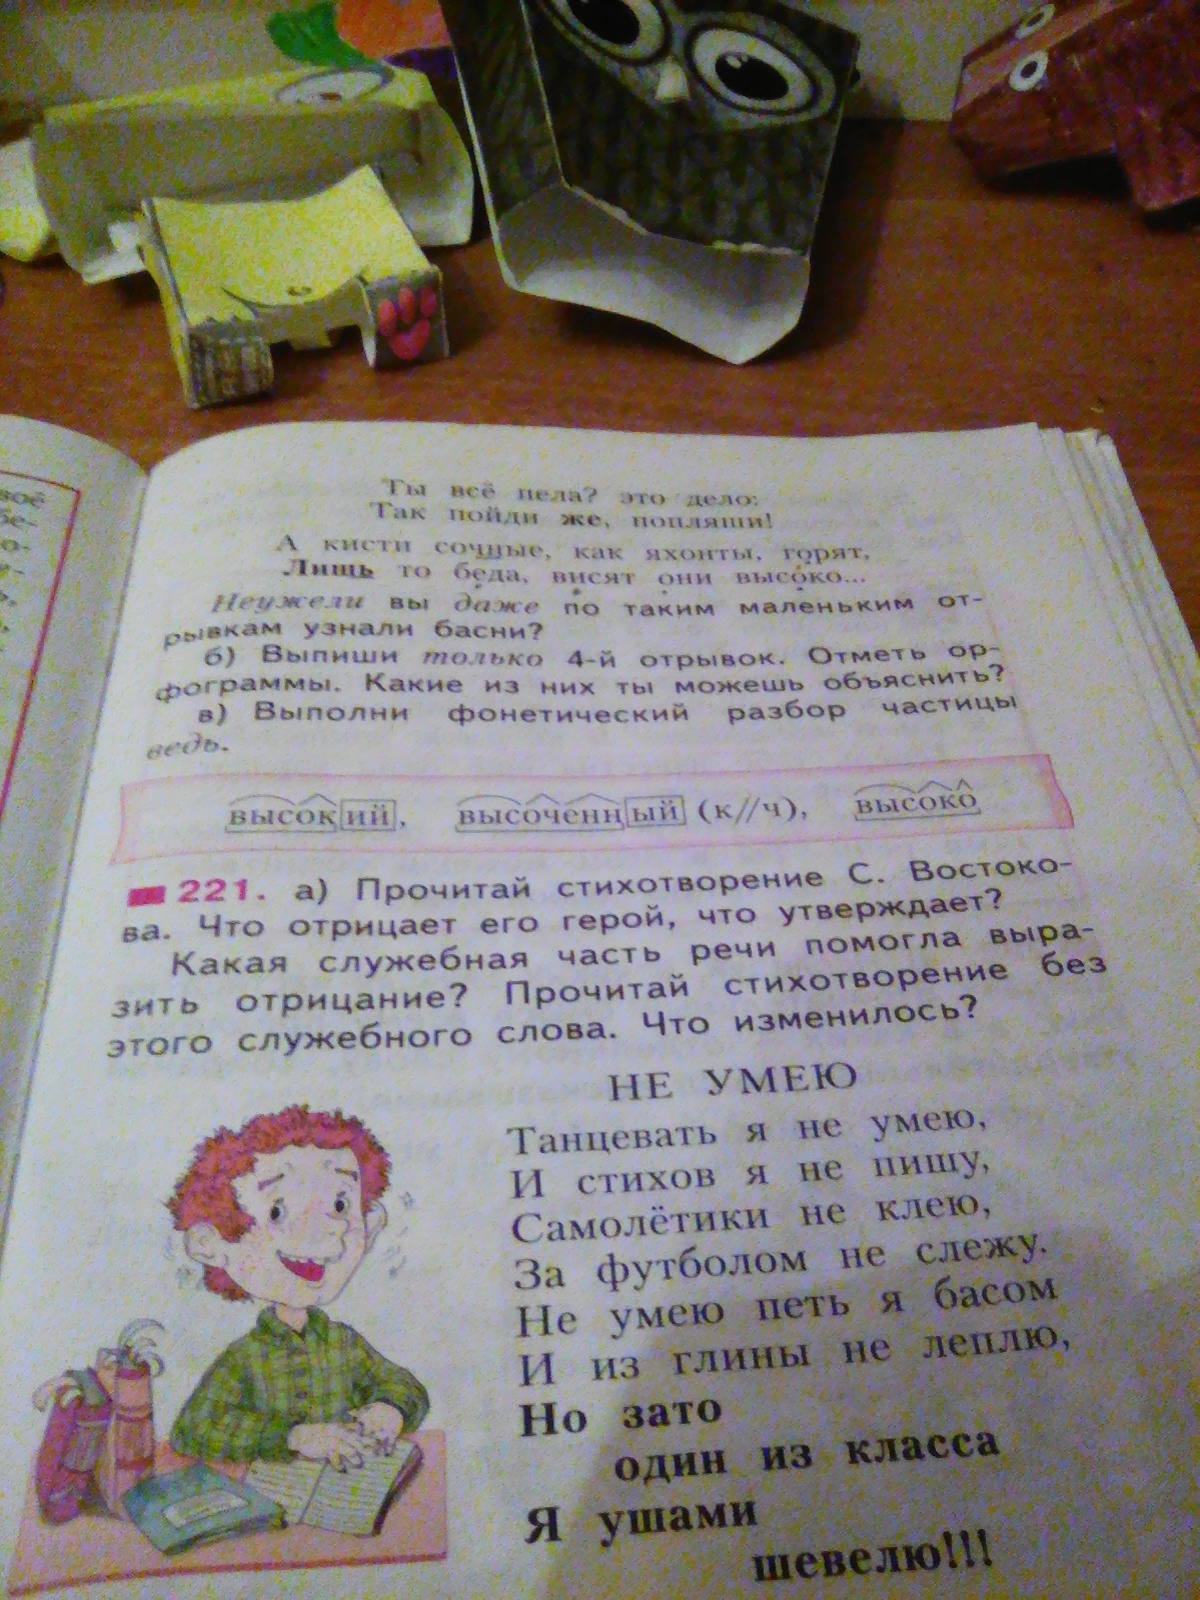 воё
бе-
о-
Ты всё пела? это дело:
Так пойди же, попляши!
А кисти сочные, как яхонты, горят,
Лишь то беда, висят они высоко...
Неужели вы даже по таким маленьким от-
рывкам узнали басни?
б) Выпиши только 4-й отрывок. Отметь ор-
фограммы. Какие из них ты можешь объяснить?
в) Выполни фонетический разбор частицы
ведь.
высокий, высоченный (к//ч), высоко
221. а) Прочитай стихотворение С. Востоко-
ва. Что отрицает его герой, что утверждает?
Какая служебная часть речи помогла выра-
зить отрицание? Прочитай стихотворение без
этого служебного слова. Что изменилось?
НЕ УМЕЮ
Танцевать я не умею,
И стихов я не пишу,
Самолётики не клею,
За футболом не слежу.
Не умею петь я басом
И из глины не леплю,
Но зато
один из класса
Я ушами
шевелю!!!